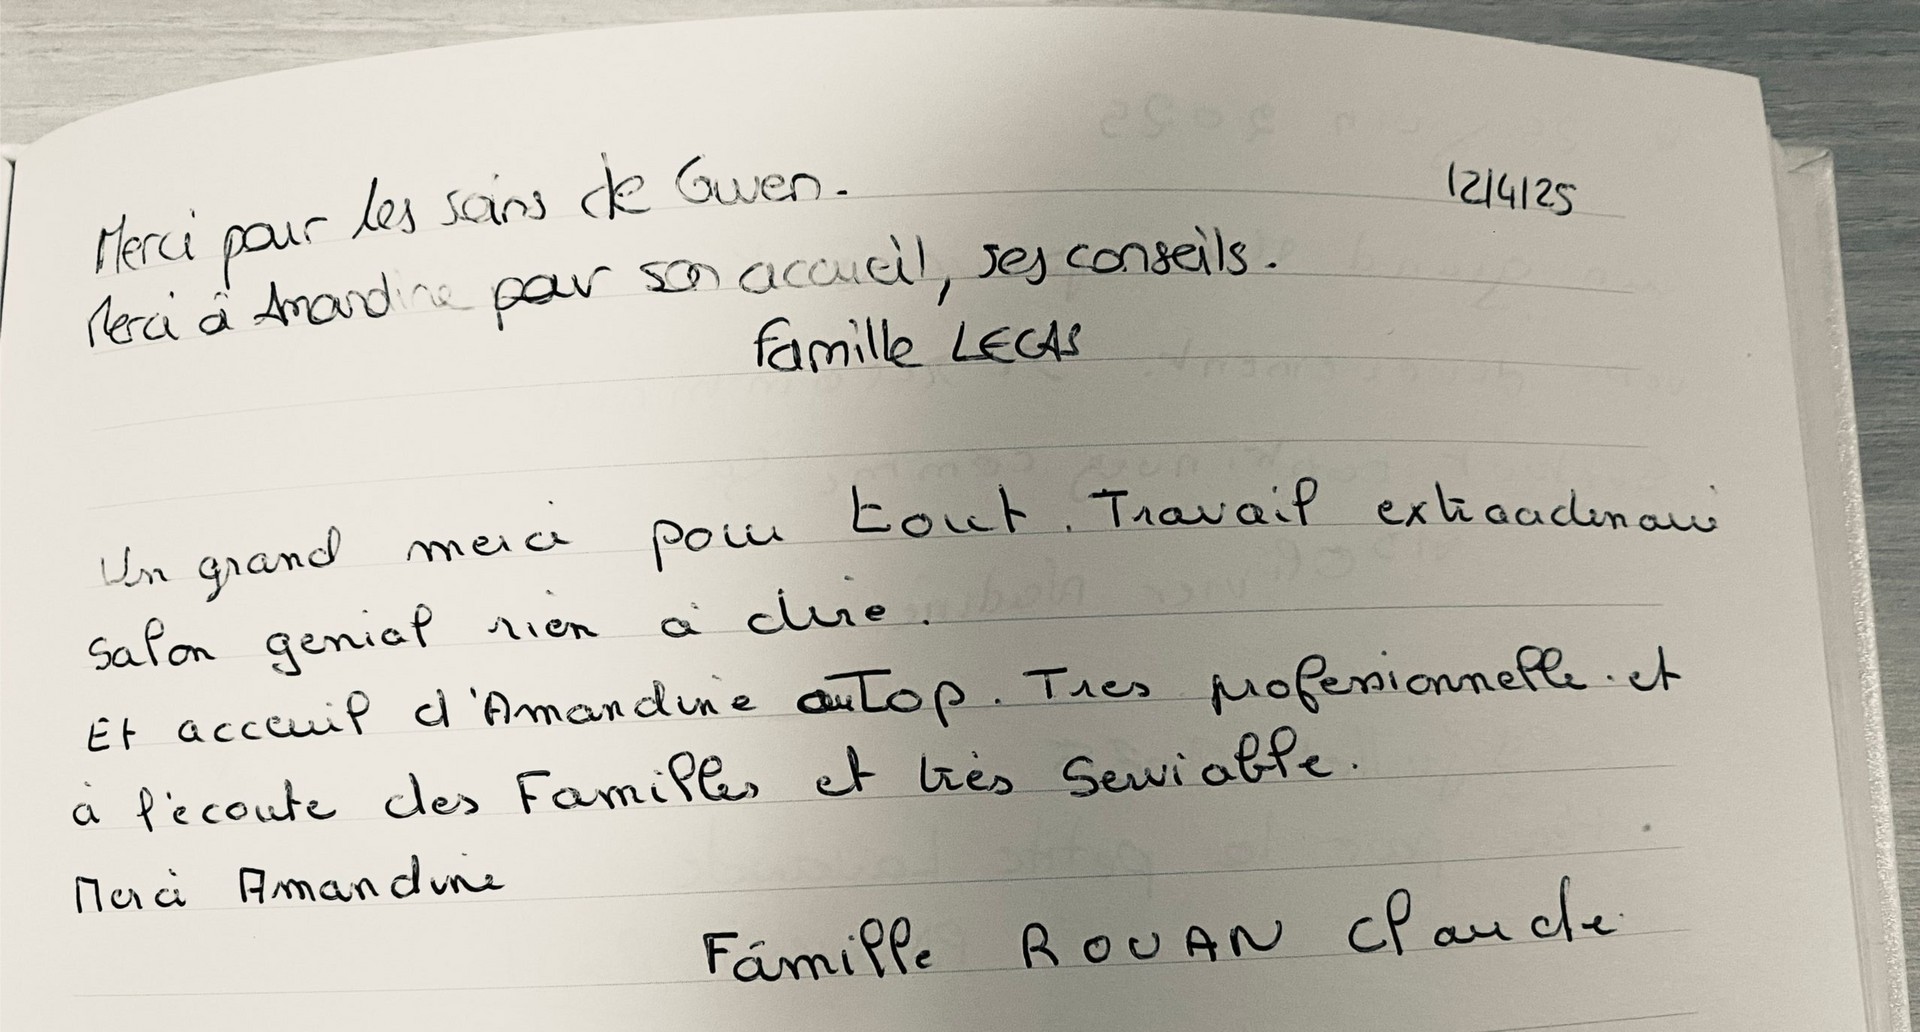 Merci pour les soins de Gwen. 12/4/25
Merci à Amandine pour son accueil, ses conseils.
famille LECAS
Un grand merci pour tout. Travail extraordinaire
Salon genial rien à dire.
Et acceuil d'Amandine au Top. Tres professionnelle. et
à l'écoute des Familles et très Serviable.
Merci Amandine
Famille ROUAN Claude